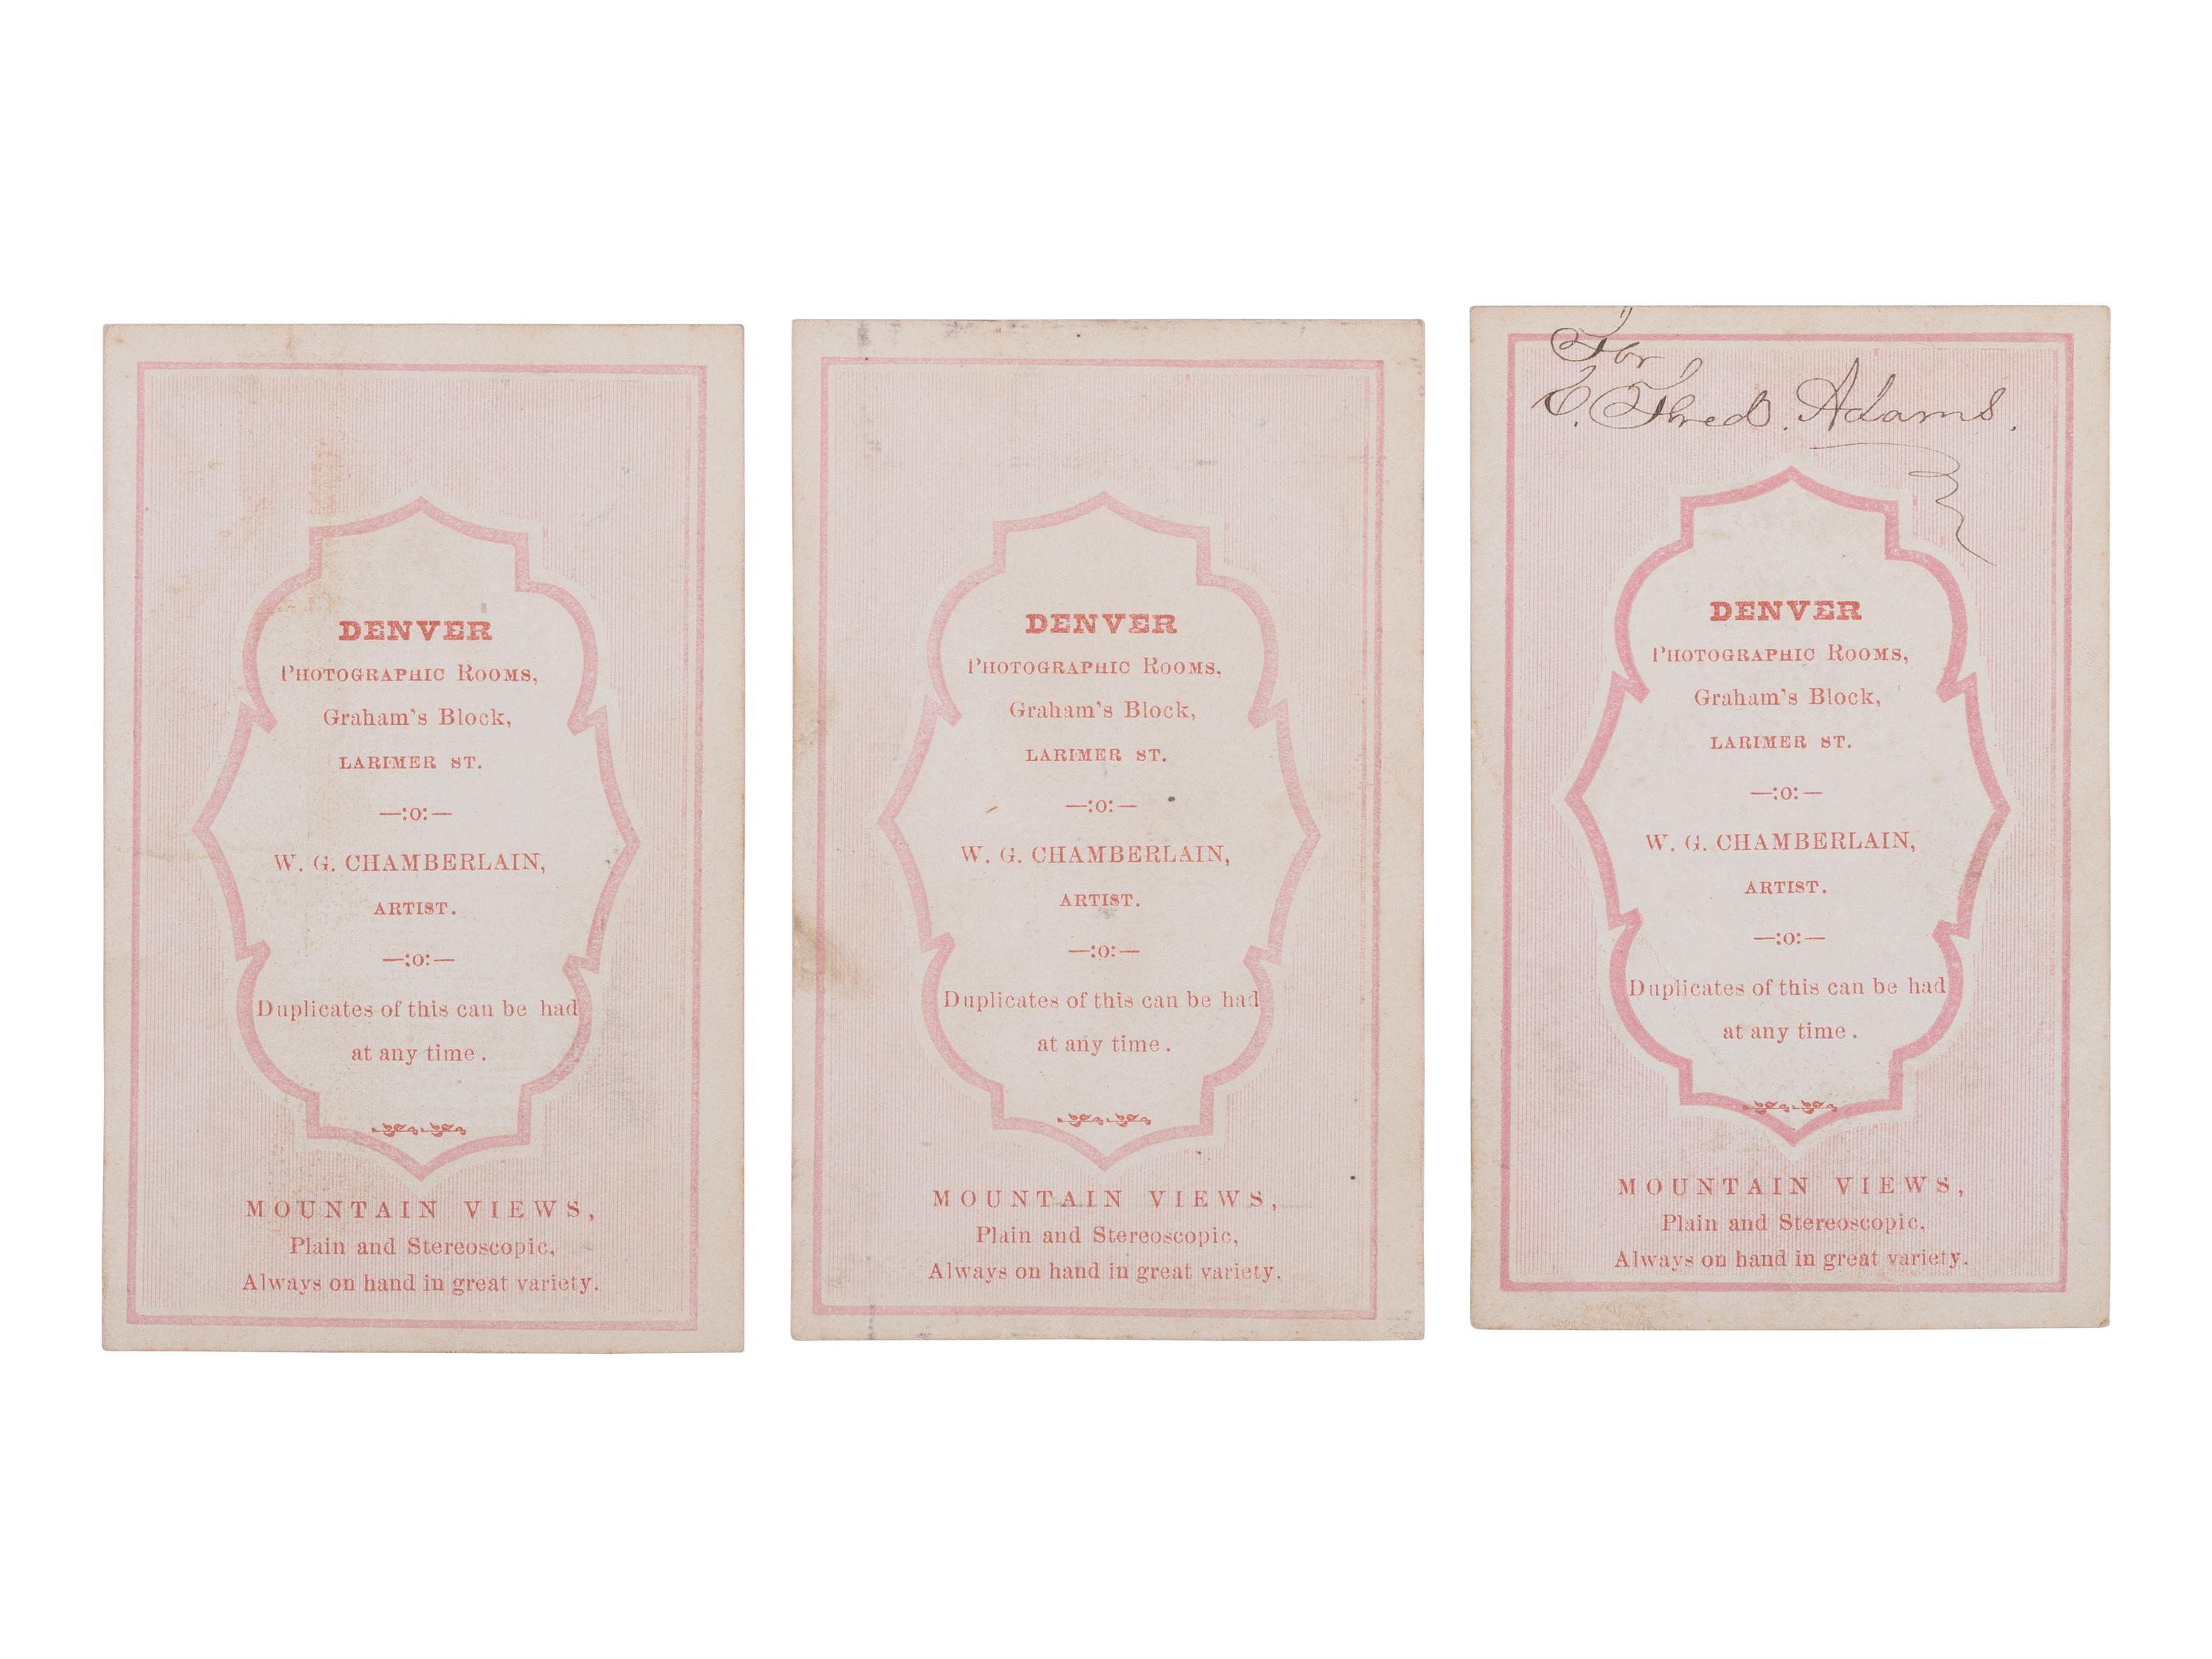 DENVER
PHOTOGRAPHIC ROOMS,
Graham's Block,
LARIMER ST.
—:o:—
W. G. CHAMBERLAIN,
ARTIST.
—:o:—
Duplicates of this can be had
at any time.
MOUNTAIN VIEWS,
Plain and Stereoscopic,
Always on hand in great variety.
DENVER
PHOTOGRAPHIC ROOMS,
Graham's Block,
LARIMER ST.
—:o:—
W. G. CHAMBERLAIN,
ARTIST.
—:o:—
Duplicates of this can be had
at any time.
MOUNTAIN VIEWS,
Plain and Stereoscopic,
Always on hand in great variety.
For
C. Fred. Adams.
DENVER
PHOTOGRAPHIC ROOMS,
Graham's Block,
LARIMER ST.
—:o:—
W. G. CHAMBERLAIN,
ARTIST.
—:o:—
Duplicates of this can be had
at any time.
MOUNTAIN VIEWS,
Plain and Stereoscopic,
Always on hand in great variety.